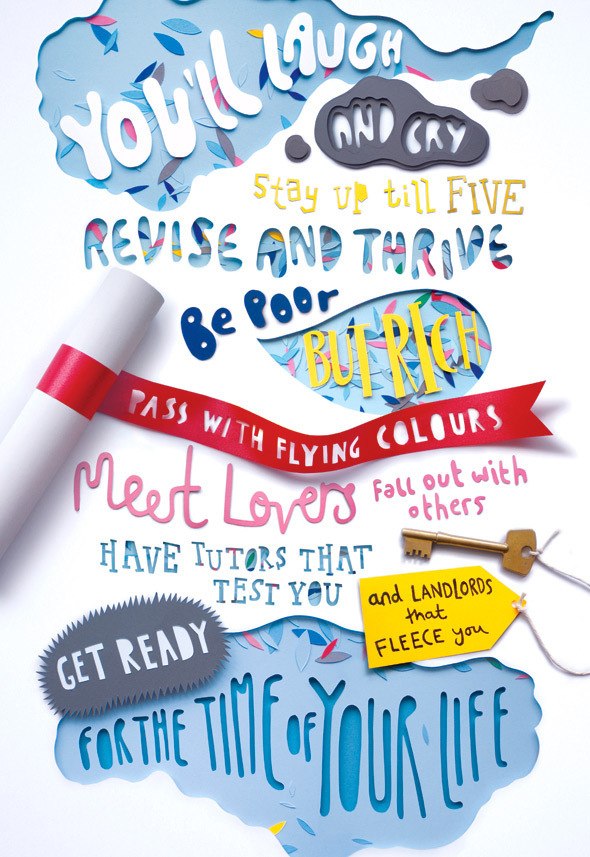 YOU'LL LAUGH
AND CRY
Stay up till FIVE
REVISE AND THRIVE
Be Poor
BUT RICH
PASS WITH FLYING COLOURS
Meet Lovers
fall out with
others
HAVE TUTORS THAT
TEST YOU
and LANDLORDS
that
FLEECE you
GET READY
FOR THE TIME OF YOUR LIFE